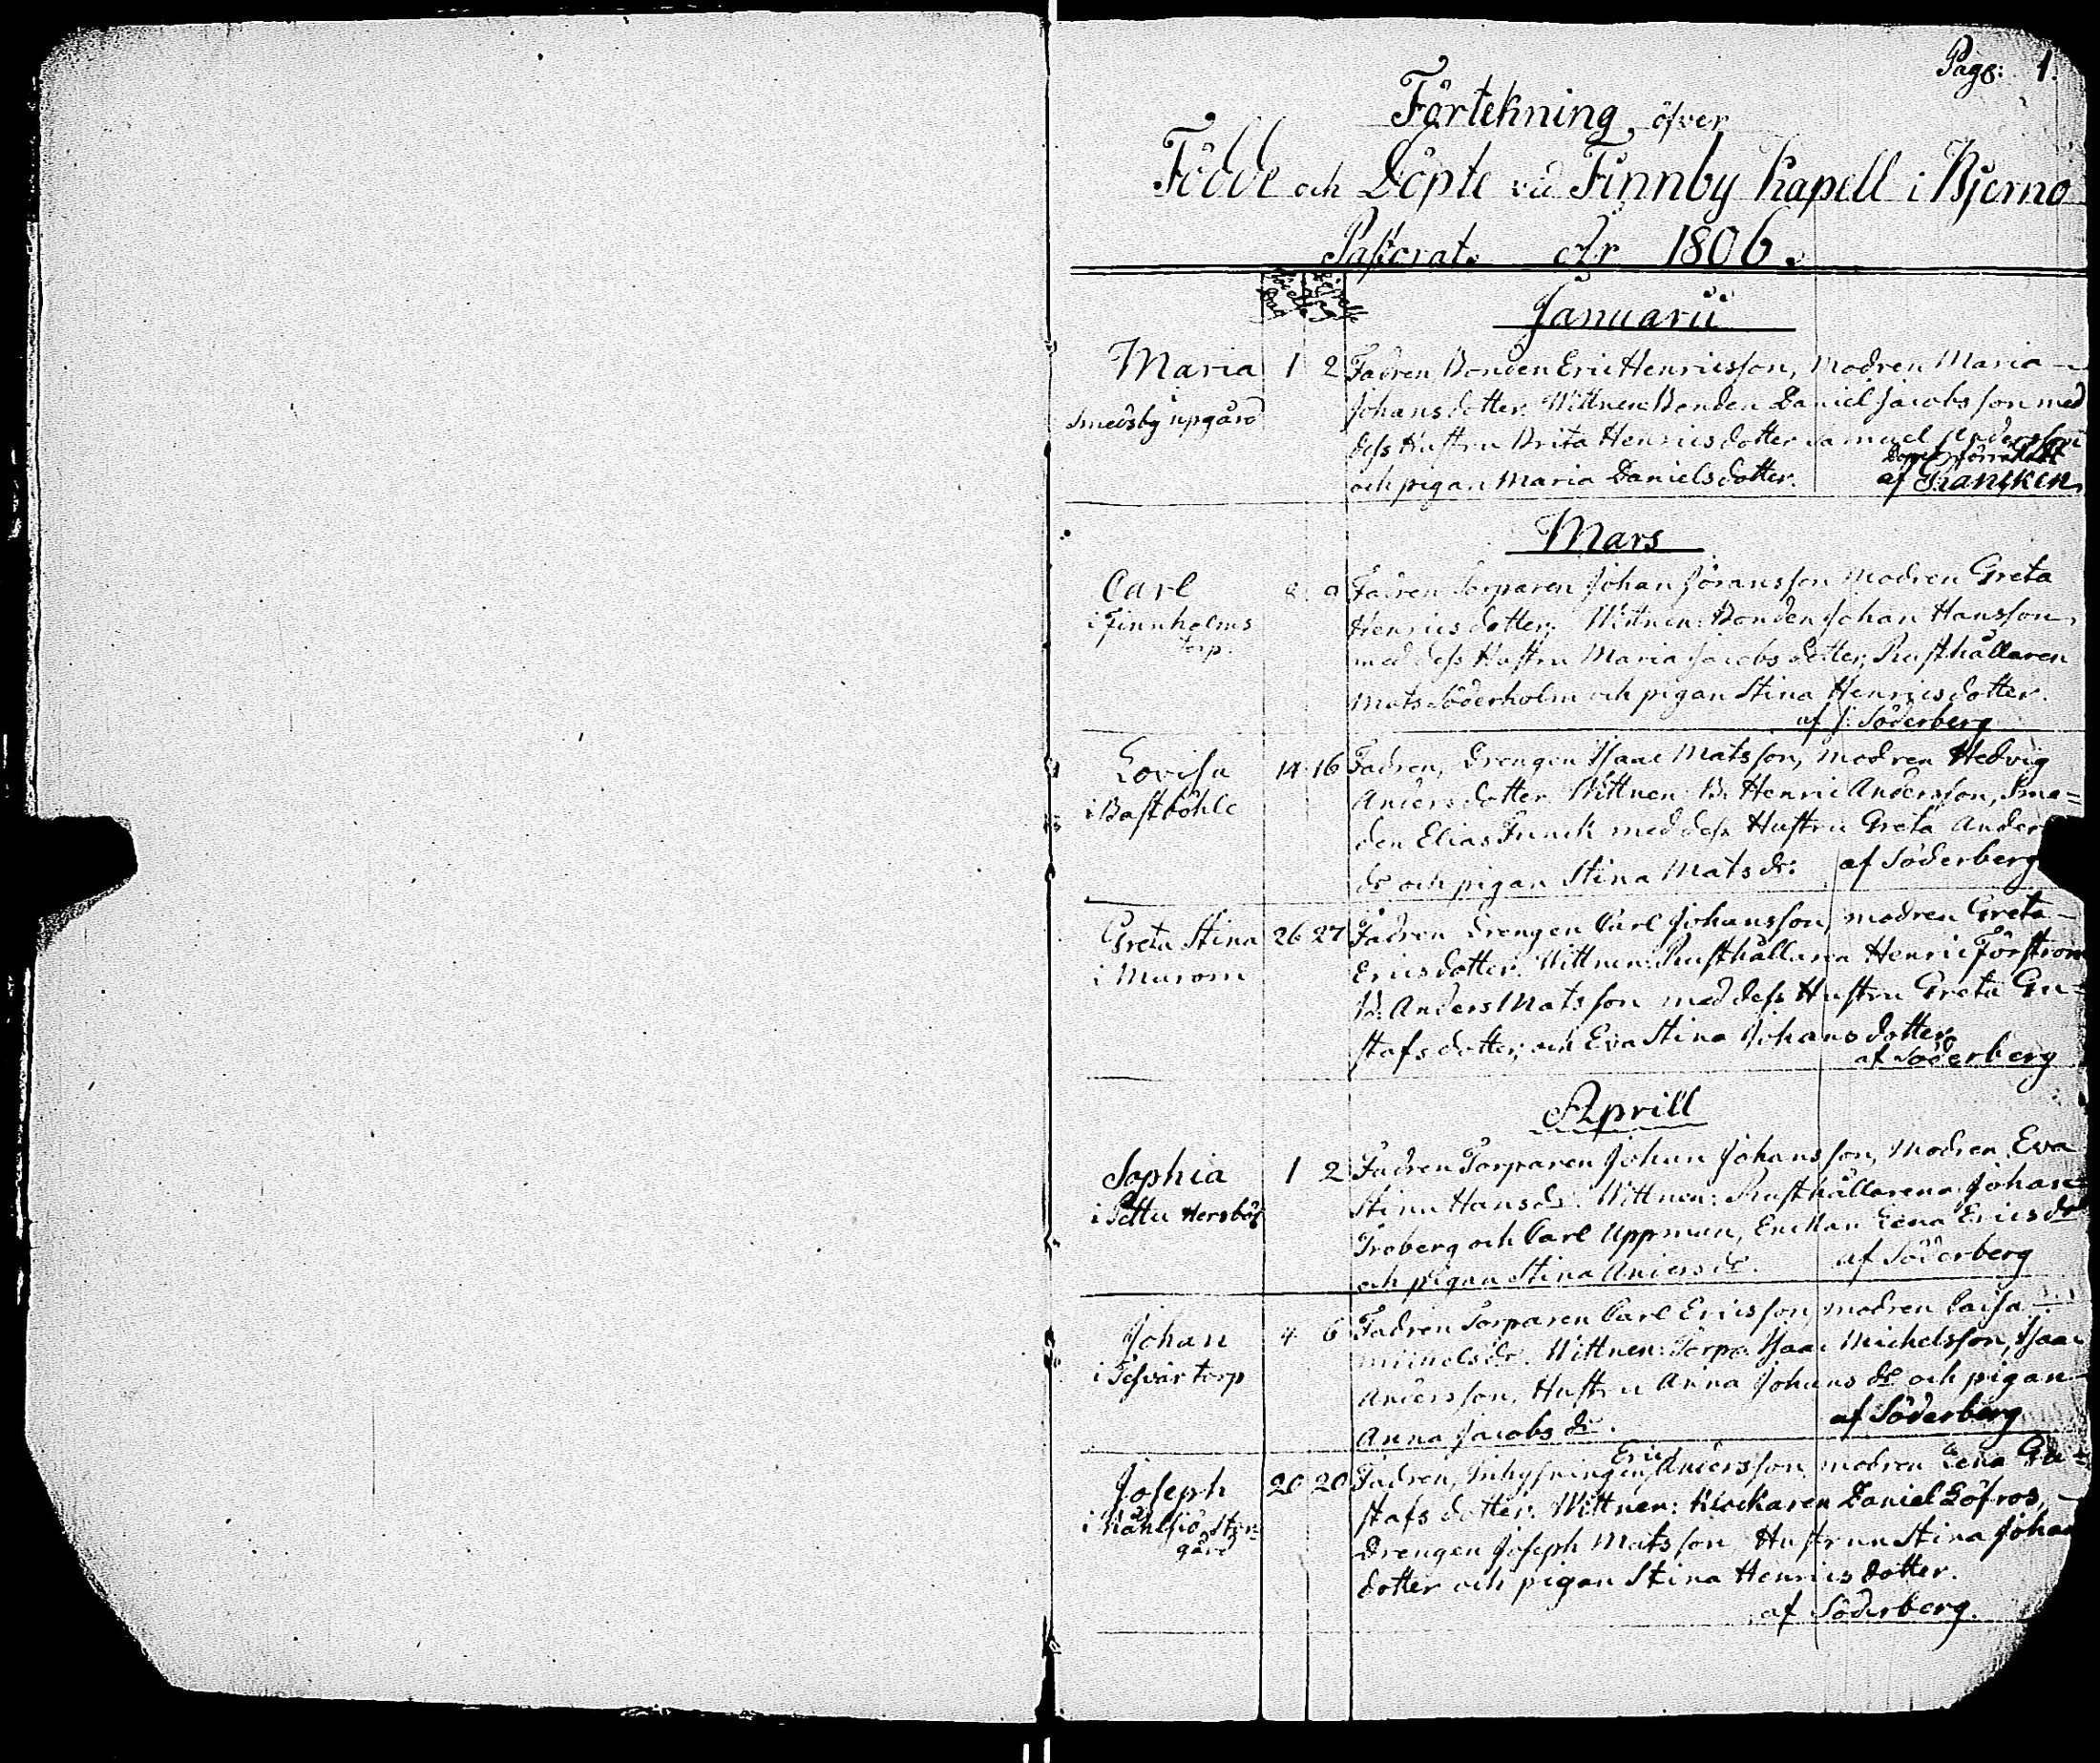 Pag: 1.
Förtekning öfver
Födde och Döpte vid Finnby Kapell i Bjerno
Pastorat. År 1806.
Januarii
Maria 1 2 Fadren Bonden Eric Henricsson, Modren Maria
i Smedsby upgård Johansdotter. Wittnen Bonden Daniel Jacobsson med
dess Hustru Brita Henricsdotter Samuel Andersson
och pigan Maria Danielsdotter. Dopet förrättadt
af
Mars
Carl 8 9 Fadren Torparen Johan Jöransson Modren Greta
i Finnholms Henricsdotter. Wittnen: Bonden Johan Hansson,
torp. med dess Hustru Maria Jacobsdotter, Rusthållaren
Mats Söderholm och pigan Stina Henricsdotter.
af J: Söderberg
Lovisa 14 16 Fadren, Drengen Isaac Matsson, modren Hedvig
i Bastböhle Andersdotter. Wittnen: B. Henric Andersson, Sme=
den Elias Funck med dess Hustru Greta Anders
dr och pigan Stina Mats dr. af Söderberg
Greta Stina 26 27 Fadren Drengen Carl Johansson, modren Greta
i Murom Ericsdotter. Wittnen: Rusthållaren Henric Förström
B. Anders Matsson med dess Hustru Greta Gu=
stafsdotter, och Eva Stina Johansdotter.
af Söderberg
Aprill
Sophia 1 2 Fadren Torparen Johan Johansson, Modren Eva
i Pettu Hersböle Stina Hansdr. Wittnen: Rusthållarena Johan
Troberg och Carl Uppman, Enckan Lena Ericsdr
och pigan Stina Andersdr. af Söderberg
Johan 4 6 Fadren Torparen Carl Ericsson, modren Caisa
i Tesvar torp Michelsdr. Wittnen: Torp. Isaac Michelsson, Isaac
Andersson, Hustru Anna Johansdr och pigan
Anna Jacobsdr. af Söderberg
Joseph 20 20 Fadren, Inhysningen Eric Andersson, modren Lena Gu=
i Kåhlsiö Styr= stafsdotter. Wittnen: Klockaren Daniel Löfros,
gård Drengen Joseph Matsson Hustrun Stina Johans
dotter och pigan Stina Henricsdotter.
af Söderberg.